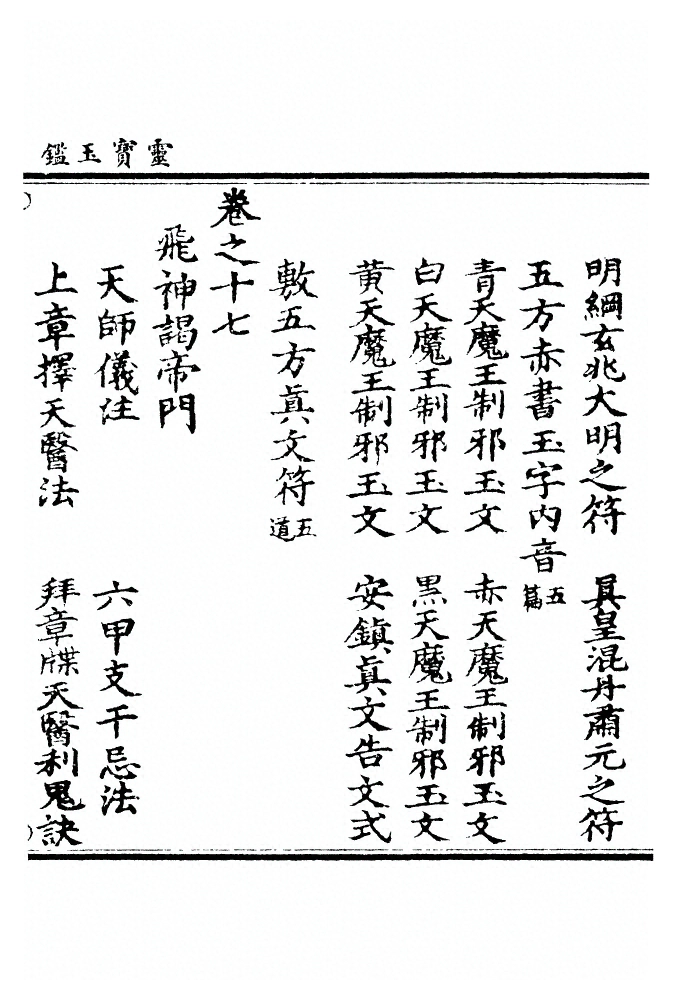 靈寶玉鑑
明綱玄兆大明之符　眞皇混丹肅元之符
五方赤書玉字內音五篇
青天魔王制邪玉文　赤天魔王制邪玉文
白天魔王制邪玉文　黑天魔王制邪玉文
黃天魔王制邪玉文　安鎮眞文告文式
敷五方眞文符五道
卷之十七
飛神謁帝門
天師儀注　六甲支干忌法
上章擇天醫法　拜章牒天醫利鬼訣